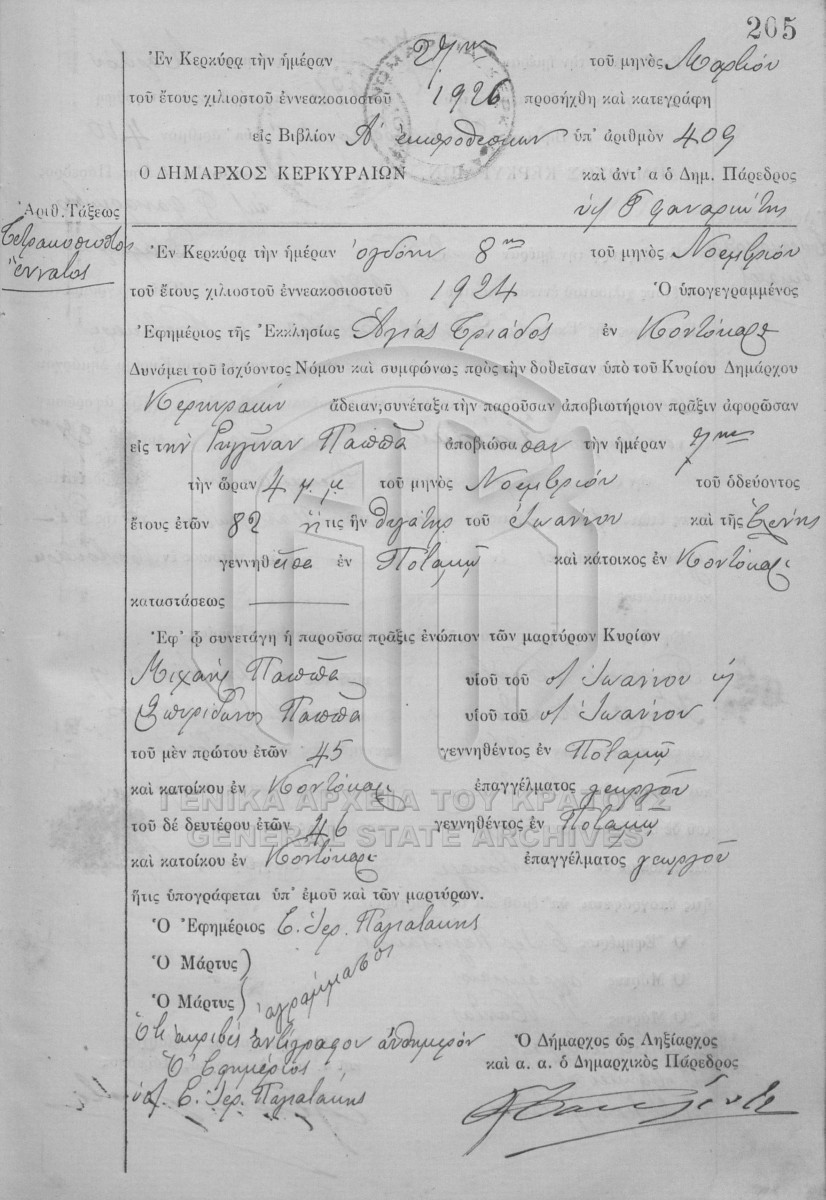 205
Ἐν Κερκύρᾳ τὴν ἡμέραν 27ην τοῦ μηνὸς Μαρτίου
τοῦ ἔτους χιλιοστοῦ ἐννεακοσιοστοῦ 1926 προσήχθη καὶ κατεγράφη
εἰς Βιβλίον Α' ἐκπροθέσμων ὑπ' ἀριθμὸν 409
Ο ΔΗΜΑΡΧΟΣ ΚΕΡΚΥΡΑΙΩΝ καὶ ἀντ' α ὁ Δημ. Πάρεδρος
Φαναριώτης
Ἀριθ. Τάξεως
Τετρακοσιοστος
ἔννατος
Ἐν Κερκύρᾳ τὴν ἡμέραν ὀγδόην 8ην τοῦ μηνὸς Νοεμβρίου
τοῦ ἔτους χιλιοστοῦ ἐννεακοσιοστοῦ 1924 Ὁ ὑπογεγραμμένος
Ἐφημέριος τῆς Ἐκκλησίας Ἁγίας Τριάδος ἐν Κοντόκαλι
Δυνάμει τοῦ ἰσχύοντος Νόμου καὶ συμφώνως πρὸς τὴν δοθεῖσαν ὑπὸ τοῦ Κυρίου Δημάρχου
Κερκυραίων ἄδειαν, συνέταξα τὴν παροῦσαν ἀποβιωτήριον πρᾶξιν ἀφορῶσαν
εἰς τὴν Ρηγγίναν Παππᾶ ἀποβιώσασαν τὴν ἡμέραν 7ην
τὴν ὥραν 4 μ. μ. τοῦ μηνὸς Νοεμβρίου τοῦ ὁδεύοντος
ἔτους ἐτῶν 82 ἥτις ἦν θυγάτηρ τοῦ Ἰωάννου καὶ τῆς Ἑλένης
γεννηθεῖσα ἐν Ποταμῷ καὶ κάτοικος ἐν Κοντόκαλι
καταστάσεως
Ἐφ' ᾧ συνετάγη ἡ παροῦσα πρᾶξις ἐνώπιον τῶν μαρτύρων Κυρίων
Μιχαὴλ Παππᾶ υἱοῦ τοῦ Ἰωάννου ἢ
Σπυρίδωνος Παππᾶ υἱοῦ τοῦ Ἰωάννου
τοῦ μὲν πρώτου ἐτῶν 45 γεννηθέντος ἐν Ποταμῷ
καὶ κατοίκου ἐν Κοντόκαλι ἐπαγγέλματος γεωργοῦ
ΓΕΝΙΚΑ ΑΡΧΕΙΑ ΤΟΥ ΚΡΑΤΟΥΣ
τοῦ δέ δευτέρου ἐτῶν 46 γεννηθέντος ἐν Ποταμῷ
GENERAL STATE ARCHIVES
καὶ κατοίκου ἐν Κοντόκαλι ἐπαγγέλματος γεωργοῦ
ἥτις ὑπογράφεται ὑπ' ἐμοῦ καὶ τῶν μαρτύρων.
Ὁ Ἐφημέριος Ε. Ἱερ. Παγιατάκης
Ὁ Μάρτυς
Ὁ Μάρτυς } ἀγράμματοι
Ὅτι ἀκριβὲς ἀντίγραφον αὐθημερόν
Ὁ Ἐφημέριος
Ε. Ἱερ. Παγιατάκης
Ὁ Δήμαρχος ὡς Ληξίαρχος
καὶ α. α. ὁ Δημαρχικὸς Πάρεδρος